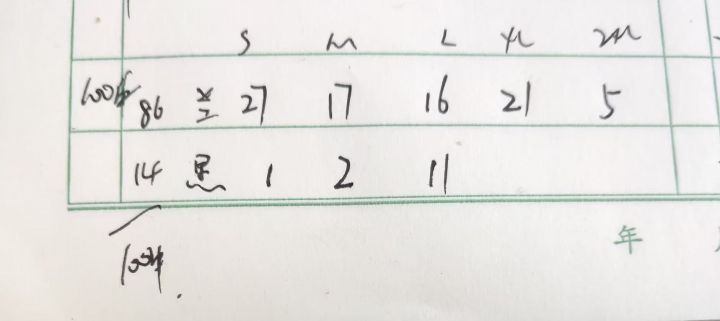 S M L XL 2XL
100件 86 兰 27 17 16 21 5
14 黑 1 2 11
100件.
年